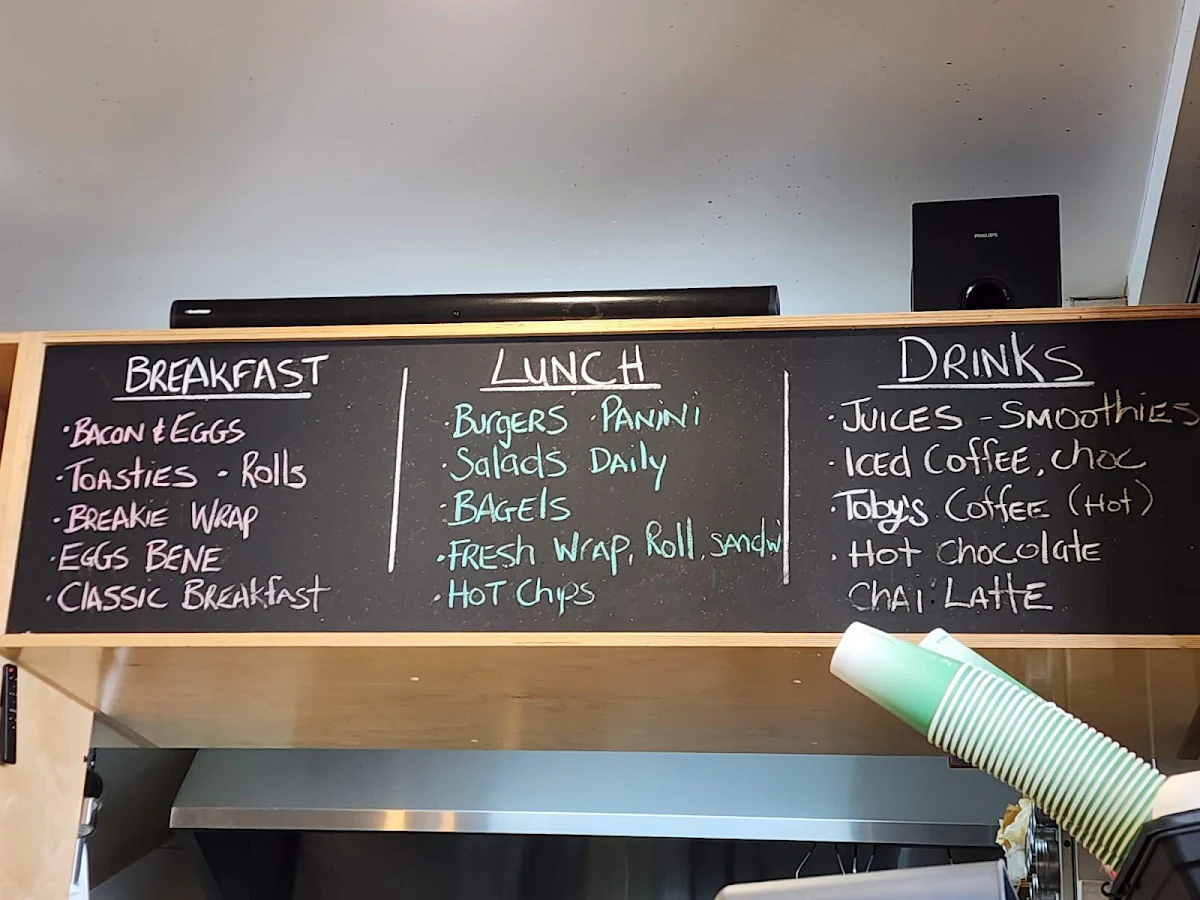 PHILIPS
BREAKFAST
·BACON & EGGS
·TOASTIES - Rolls
·BREAKIE WRAP
·EGGS BENE
·CLASSIC BREAKFAST
LUNCH
·BURGERS ·PANINI
·Salads DAILY
·BAGELS
·FRESH WRAP, Roll, SANDW
·HOT CHIPS
DRINKS
·JUICES - SMOOTHIES
·ICED COFFEE, CHOC
·Toby's COFFEE (HOT)
·HOT CHOCOLATE
CHAI LATTE